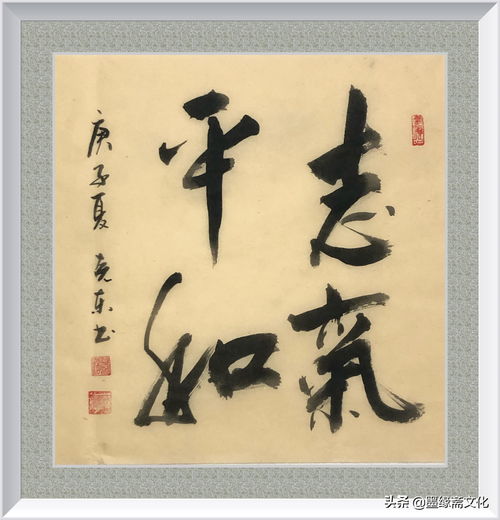 志氣
平和
庚子夏 克东书
头条 @墨缘斋文化